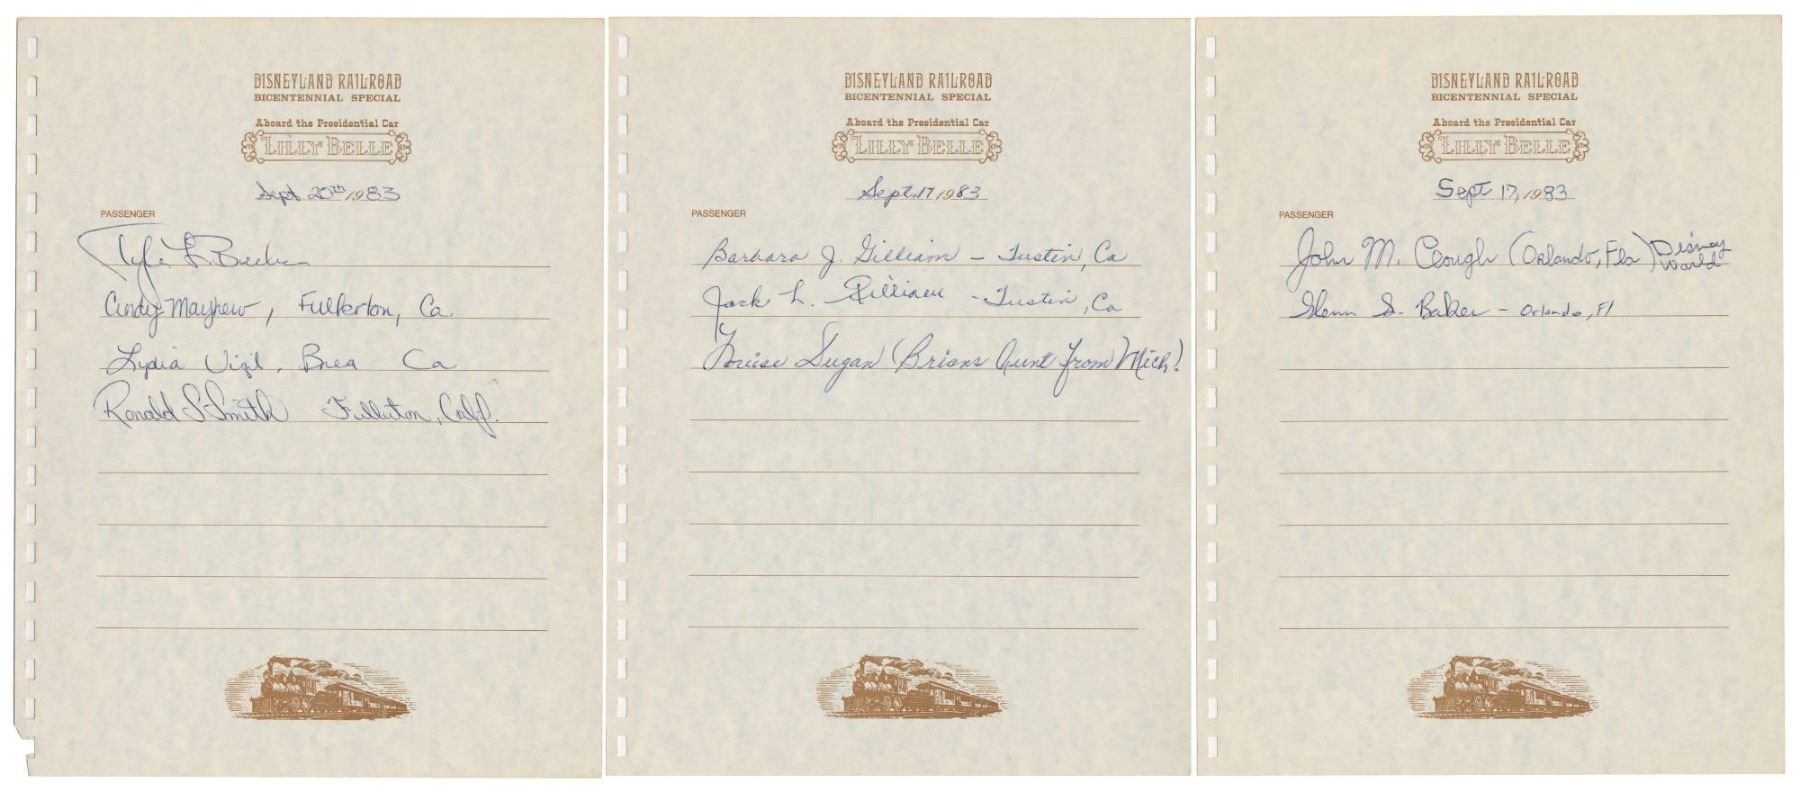 DISNEYLAND RAILROAD
BICENTENNIAL SPECIAL
Aboard the Presidential Car
LILLY BELLE
Sept 20th 1983
PASSENGER
L.
Cindy Mayhew, Fullerton, Ca.
Lydia Vigil, Brea Ca
Ronald S Smith Fullerton, Calif.
DISNEYLAND RAILROAD
BICENTENNIAL SPECIAL
Aboard the Presidential Car
LILLY BELLE
Sept. 17 1983
PASSENGER
Barbara J. Gilliam - Tustin, Ca
Jack L. Gilliam - Tustin, Ca
Louise Dugan (Brians Aunt from Mich!
DISNEYLAND RAILROAD
BICENTENNIAL SPECIAL
Aboard the Presidential Car
LILLY BELLE
Sept 17, 1983
PASSENGER
John M. Clough (Orlando, Fla) Disney World
Glenn S. Baker - Orlando, Fl